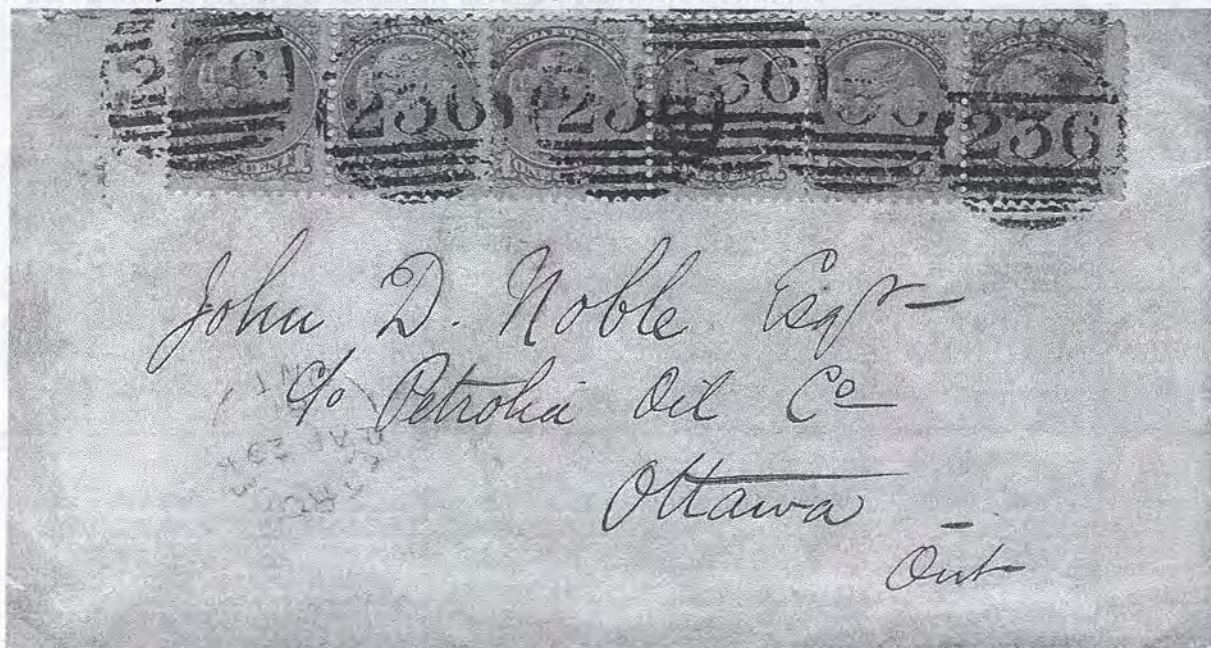 2 6 236 23 236 36 236
John D. Noble Esqr
c/o Petrolia Oil Co
Ottawa
Ont